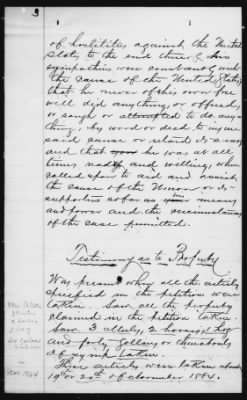 3
of hostilities against the United
States to the end thereof his
sympathies were constantly with
the cause of the United States;
that he never of his own free
will did anything, or offered,
or sought or attempted to do any-
thing, by word or deed to injure
said cause or retard its success
and that he was at all
times ready and willing, when
called upon to aid and assist
the cause of the Union or its
supporters so far as means
and power and the circumstances
of the case permitted.
Testimony as to Property
Was present when all the articles
specified in the petition were
taken. Saw all the property
claimed in the petition taken.
Saw 3 Mules, 2 horses, 1 hog
and forty gallons of
syrup taken.
These articles were taken about
19th or 20th of November 1864.
Nov 1864